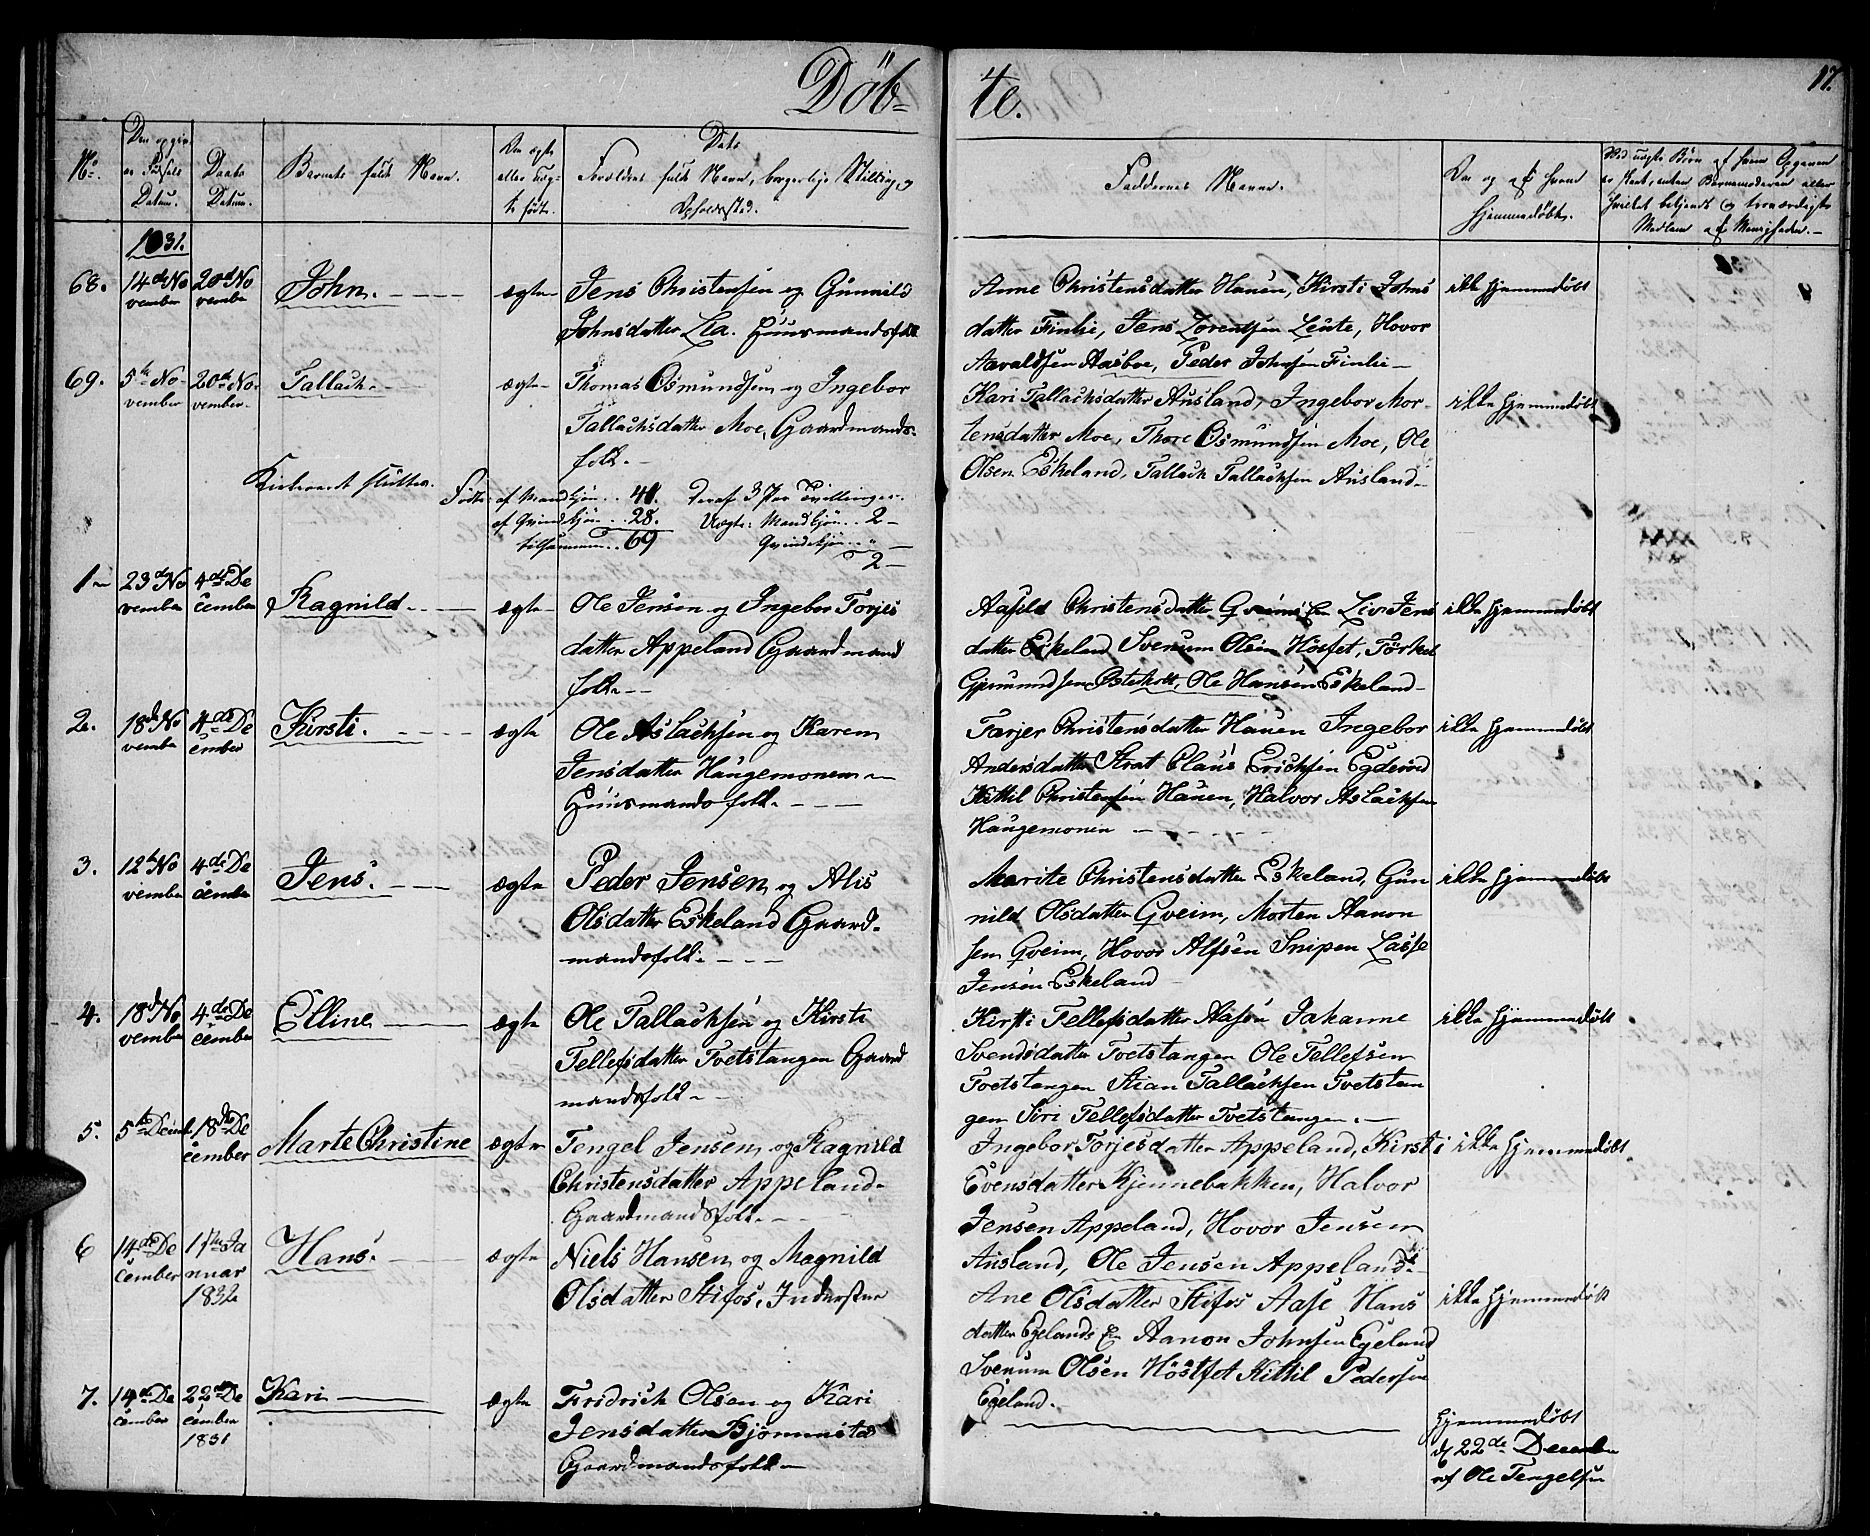 Døb-
te.
17.
No.
Den opgiv-
ne Fødsels
Datum.
Daabs
Datum.
Barnets fulde Navn.
Om ægte
eller uæg-
te født.
Dets
Forældres fulde Navn, borgerlige Stilling og
Opholdssted.
Faddernes Navne.
Om og af hvem
hjemmedøbt.
Ved uægte Børn af hvem Opgaven
er skeet, enten Barnemoderen eller
hvilket bekjendt og troværdigt
Medlem af Menigheden.
1831.
68. 14de No
vember
20de No
vember
John.
ægte
Jens Christensen og Gunnild
Johnsdatter Lia. Huusmandsfolk
Anne Christensdatter Hauen, Kirsti Johns
datter Finlie, Jens Lorentsen Leute, Hovor
Aavaldsen Aasboe, Peder Johnsen Finlie
ikke hjemmedøbt
69. 5te No-
vember
20de No-
vember.
Tallach.
ægte
Thomas Osmundsen og Ingebor
Tallachsdatter Moe, Gaardmands-
folk.
Kari Tallachsdatter Ausland, Ingebor Mor-
tensdatter Moe, Thore Osmundsen Moe, Ole
Olsen Eskeland, Tallach Tallachsen Ausland
ikke hjemmedøbt
Kirkeaaret sluttes.
Fødte af Mandkjøn .. 41. Deraf 3 Par Tvillinger.
af Qvindekjøn .. 28. Uægte: Mandkjøn .. 2
tilsammen .. 69 Qvindekjøn .. "
2
1 23de No
vember
4de De
cember
Ragnild
ægte
Ole Jensen og Ingebor Torjes
datter Appeland Gaardmand
folk
Aasild Christensdatter Gveims Liv Jens
datter Eskeland Svenum Olsen Høstfet, Torkel
Gjermundsen Østerholt, Ole Hansen Eskeland
ikke hjemmedøbt
2. 18de No
vember
4de De
cember
Kirsti.
ægte
Ole Aslachsen og Karen
Jensdatter Haugemonen
Huusmandsfolk
Tarjer Christensdatter Hauen Ingebor
Andersdatter Strat Claus Erichsen Egderød
Kittil Christensen Hauen, Halvor Aslachsen
Haugemonen
ikke hjemmedøbt
3. 12te No
vember
4de De
cember
Jens.
ægte
Peder Jensen og Alis
Olsdatter Eskeland Gaard-
mandsfolk.
Marite Christensdatter Eskeland, Gun
nild Olsdatter Gveim, Morten Aanon
sen Gveim, Hovor Alfsen Snipen Lasse
Jensen Eskeland
ikke hjemmedøbt
4. 18de No
vember
4de De
cember
Elline
ægte
Ole Tallachsen og Kirsti
Tellefsdatter Tvetstangen Gaard
mandsfolk
Kirsti Tellefsdatter Aasen Johanne
Svendsdatter Tvetstangen Ole Tellefsen
Tvetstangen Stian Tallachsen Tvetstan
gen Siri Tellefsdatter Tvetstangen.
ikke hjemmedøbt
5. 5te Decemb.
18de De
cember
Marte Christine
ægte
Tengel Jensen og Ragnild
Christensdatter Appeland
Gaardmandsfolk
Ingebor Torjesdatter Appeland, Kirsti
Evensdatter Kjennebakken, Halvor
Jensen Appeland, Hovor Jensen
Ausland, Ole Jensen Appeland
ikke hjemmedøbt
6 14de De
cember
17de Ja
nuar
1832
Hans
ægte
Niels Hansen og Magnild
Olsdatter Stifos, Inderster
Ane Olsdatter Stifos Aase Hans
datter Egelands Aanon Johnsen Egeland
Svenum Olsen Høstfet Kittil Pedersen
Egeland.
ikke hjemmedøbt
7. 14de De
cember
22de De
cember
1831
Kari
ægte
Fridrich Olsen og Kari
Jensdatter Bjømmsta
Gaardmandsfolk
Hjemmedøbt
d 22de December
af Ole Tengelsen